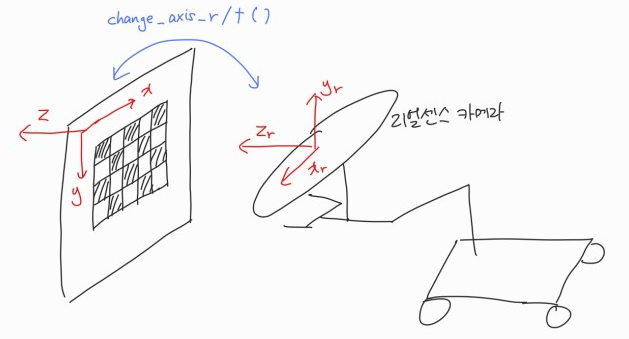 change_axis_r/t()
z
x
y
yr
zr
xr
리얼센스 카메라